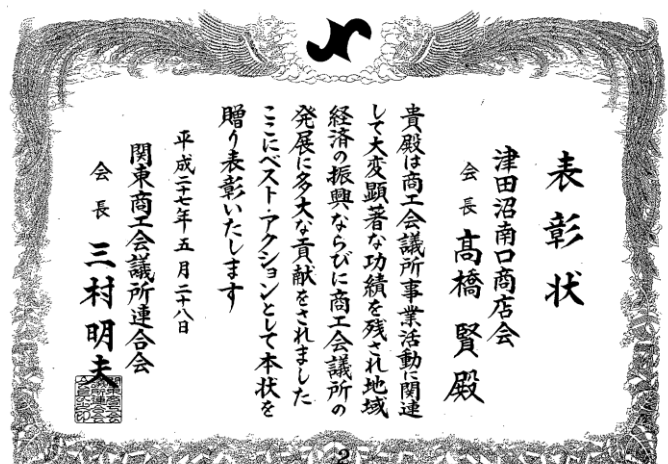 表彰状
津田沼南口商店会
会長 髙橋賢殿
貴殿は商工会議所事業活動に関連
して大変顕著な功績を残され地域
経済の振興ならびに商工会議所の
発展に多大な貢献をされました
ここにベスト・アクションとして本状を
贈り表彰いたします
平成二十七年五月二十八日
関東商工会議所連合会
会長 三村明夫
2